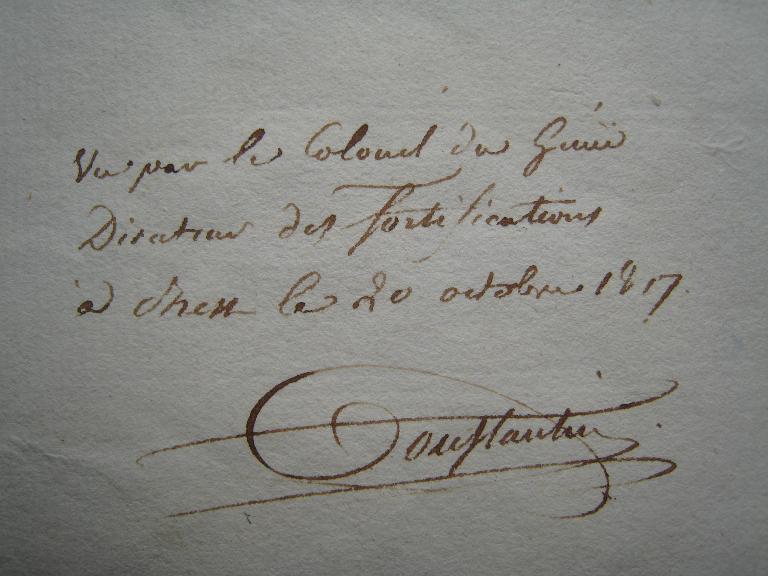 Vu par le Colonel du Génie
Directeur des fortifications
à le 20 octobre 1817.
Constantin